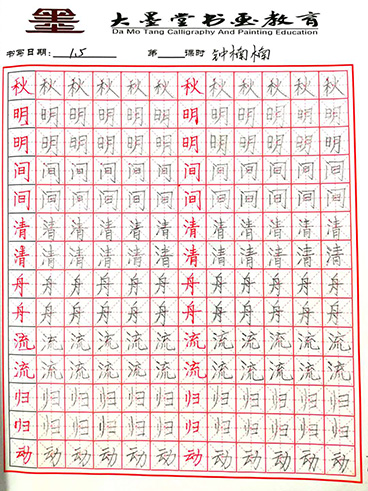 墨 大墨堂书画教育
Da Mo Tang Calligraphy And Painting Education
书写日期: 1.5 第 课时 钟楠楠
秋秋秋秋秋秋秋秋秋秋秋秋
明明明明明明明明明明明明
明明明明明明明明明明明明
间间间间间间间间间间间间
间间间间间间间间间间间间
清清清清清清清清清清清清
清清清清清清清清清清清清
舟舟舟舟舟舟舟舟舟舟舟舟
舟舟舟舟舟舟舟舟舟舟舟舟
流流流流流流流流流流流流
流流流流流流流流流流流流
归归归归归归归归归归归归
归归归归归归归归归归归归
动动动动动动动动动动动动